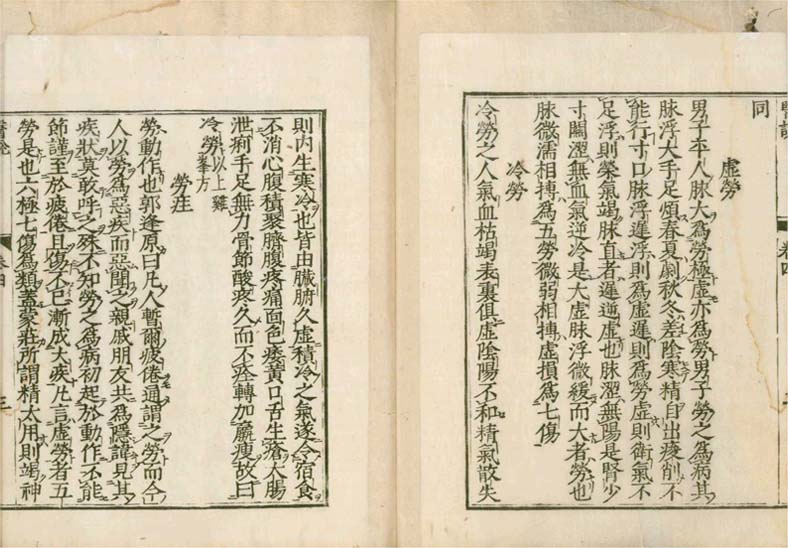 同
虛勞
男子平人脉大爲勞極虛亦爲勞男子勞之爲病其
脉浮大手足煩春夏劇秋冬差陰寒精自出痠削不
能行寸口脉浮遲浮則爲虛遲則爲勞虛則衛氣不
足浮則榮氣竭脉直者遲逆虛也脉澀無陽是腎少
寸關澀無血氣逆冷是大虛脉浮微緩而大者勞也
脉微濡相搏爲五勞微弱相搏虛損爲七傷
冷勞
冷勞之人氣血枯竭表裏俱虛陰陽不和精氣散失
則內生寒冷也皆由臟腑久虛積冷之氣遂令宿食
不消心腹積聚臍腹疼痛面色痿黃口舌生瘡大腸
泄痢手足無力骨節酸疼久而不痊轉加羸瘦故曰
冷勞以上雞峯方
勞疰
勞動作也郭逢原曰凡人暫爾疲倦通謂之勞而今
人以勞爲惡疾而惡聞之親戚朋友共爲隱諱見其
疾狀莫敢呼之殊不知勞之爲病初起於動作不能
節謹至於疲倦且傷不已漸成大疾凡言虛勞者五
勞是也六極七傷爲類蓋蒙莊所謂精太用則竭神